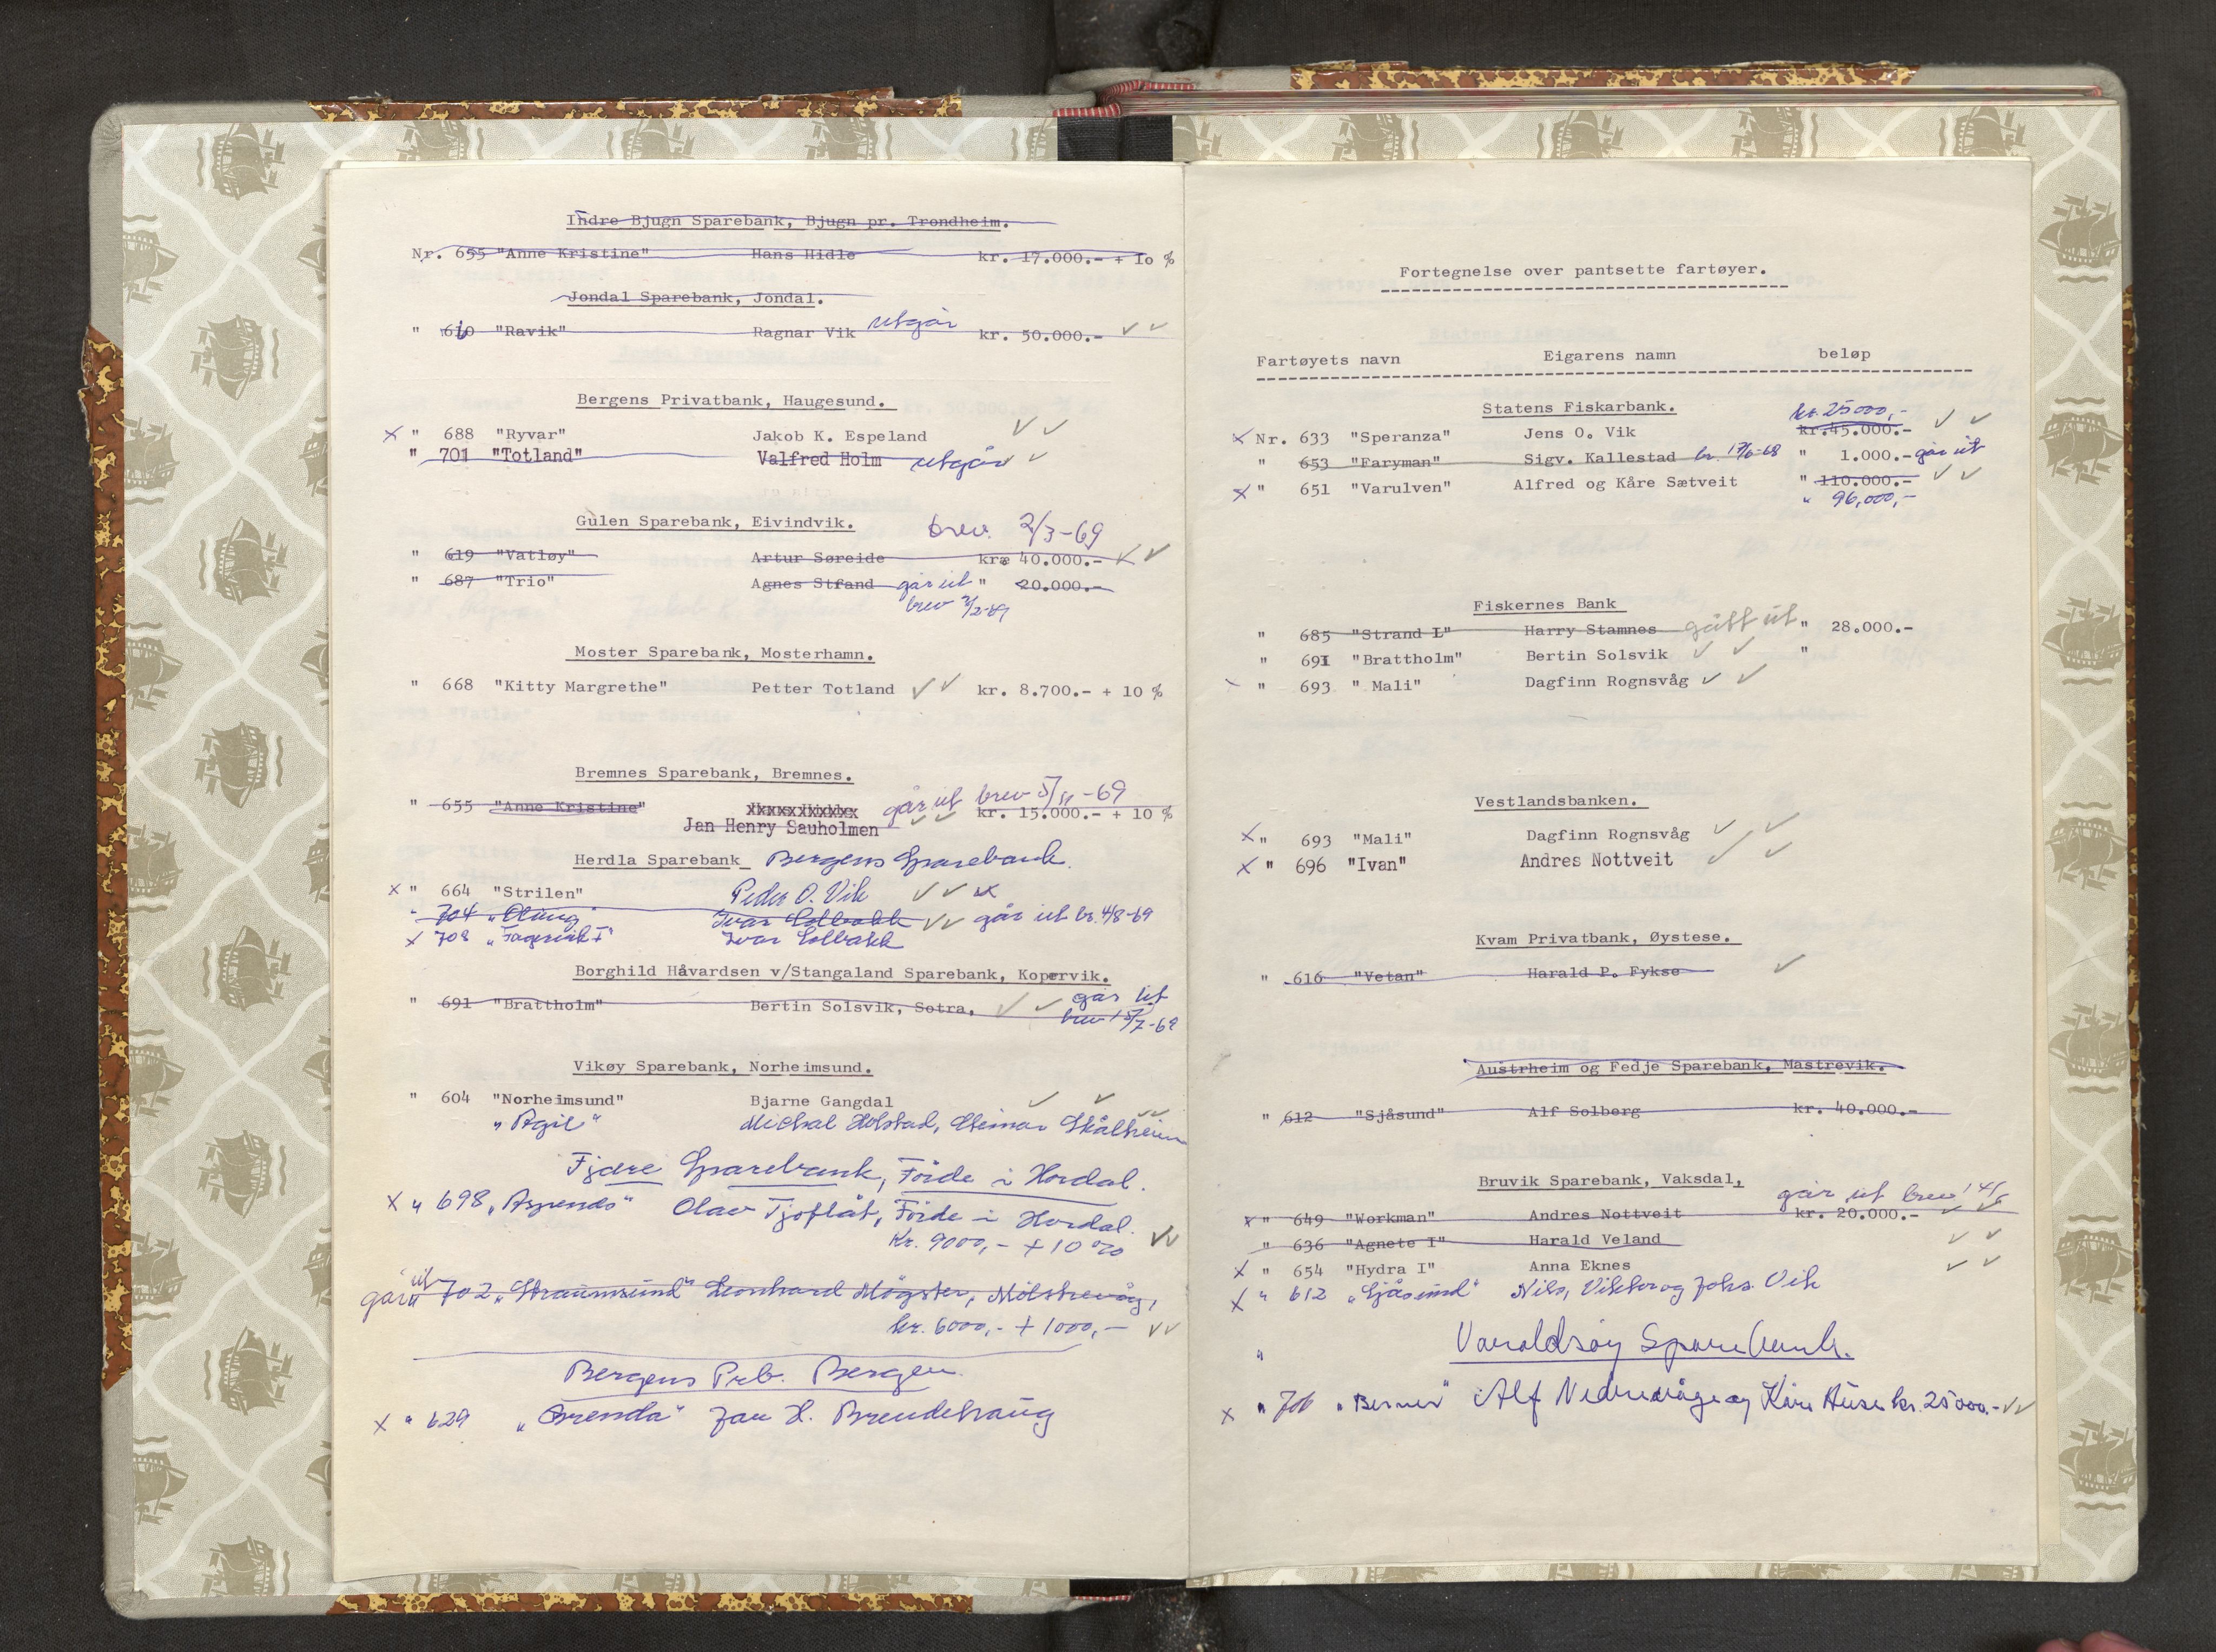 Indre Bjugn Sparebank, Bjugn pr. Trondheim.
Nr. 655 "Anne Kristine" Hans Hidle kr. 17.000.- + 10 %
Jondal Sparebank, Jondal.
" 610 "Ravik" Ragnar Vik utgår kr. 50.000.-
Bergens Privatbank, Haugesund.
x " 688 "Ryvar" Jakob K. Espeland
" 701 "Totland" Valfred Holm utgår
Gulen Sparebank, Eivindvik. brev. 2/3-69
" 619 "Vatløy" Artur Søreide kr 40.000.-
" 687 "Trio" Agnes Strand går ut " 20.000.-
brev 2/2-69
Moster Sparebank, Mosterhamn.
" 668 "Kitty Margrethe" Petter Totland kr. 8.700.- + 10 %
Bremnes Sparebank, Bremnes.
" 655 "Anne Kristine" går ut brev 5/11-69 kr. 15.000.- + 10 %
Jan Henry Sauholmen
Herdla Sparebank Bergens Sparebank.
x " 664 "Strilen" Peder O. Vik
" 704 Ivar Solbakk går ut br. 4/8-69
x 708 "Fagervik I" Ivar Solbakk
Borghild Håvardsen v/Stangaland Sparebank, Kopervik.
" 691 "Brattholm" Bertin Solsvik, Sotra, går ut
brev 15/7-69
Vikøy Sparebank, Norheimsund.
" 604 "Norheimsund" Bjarne Gangdal
"Agil" Michal Holstad, Steinar Skålheim
Fjære Sparebank, Förde i Hordal.
x " 698 "Aspenes" Olav Tjoflåt, Förde i Hordal.
Kr. 9000,- + 10 %
går ut " 702 "Straumsund" Leonhard Møgster, Møkstrevåg,
kr. 6000,- + 1000,-
Bergens Prb. Bergen.
x " 629 "Brenda" Jan H. Brendehaug
Fortegnelse over pantsette fartøyer.
Fartøyets navn Eigarens namn beløp
Statens Fiskarbank. kr. 25000,-
x Nr. 633 "Speranza" Jens O. Vik kr. 45.000.-
" 653 "Faryman" Sigv. Kallestad br. 17/6-68 " 1.000.- går ut
x " 651 "Varulven" Alfred og Kåre Sætveit " 110.000.-
" 96,000,-
Fiskernes Bank
" 685 "Strand L" Harry Stamnes gått ut " 28.000.-
" 691 "Brattholm" Bertin Solsvik "
" 693 " Mali" Dagfinn Rognsvåg
Vestlandsbanken.
x " 693 "Mali" Dagfinn Rognsvåg
x " 696 "Ivan" Andres Nottveit
Kvam Privatbank, Øystese.
" 616 "Vetan" Harald P. Fykse
Austrheim og Fedje Sparebank, Mastrevik.
" 612 "Sjåsund" Alf Solberg kr. 40.000.-
Bruvik Sparebank, Vaksdal,
går ut brev
x " 649 "Workman" Andres Nottveit kr. 20.000.-
" 636 "Agnete I" Harald Veland
x " 654 "Hydra I" Anna Eknes
x " 612 "Sjåsund" Nils, Viktor og Johs. Vik
Varaldsøy Sparebank.
"
x " 706 "Berner" Alf Nedrevåge og Kåre Huse kr. 25000.-